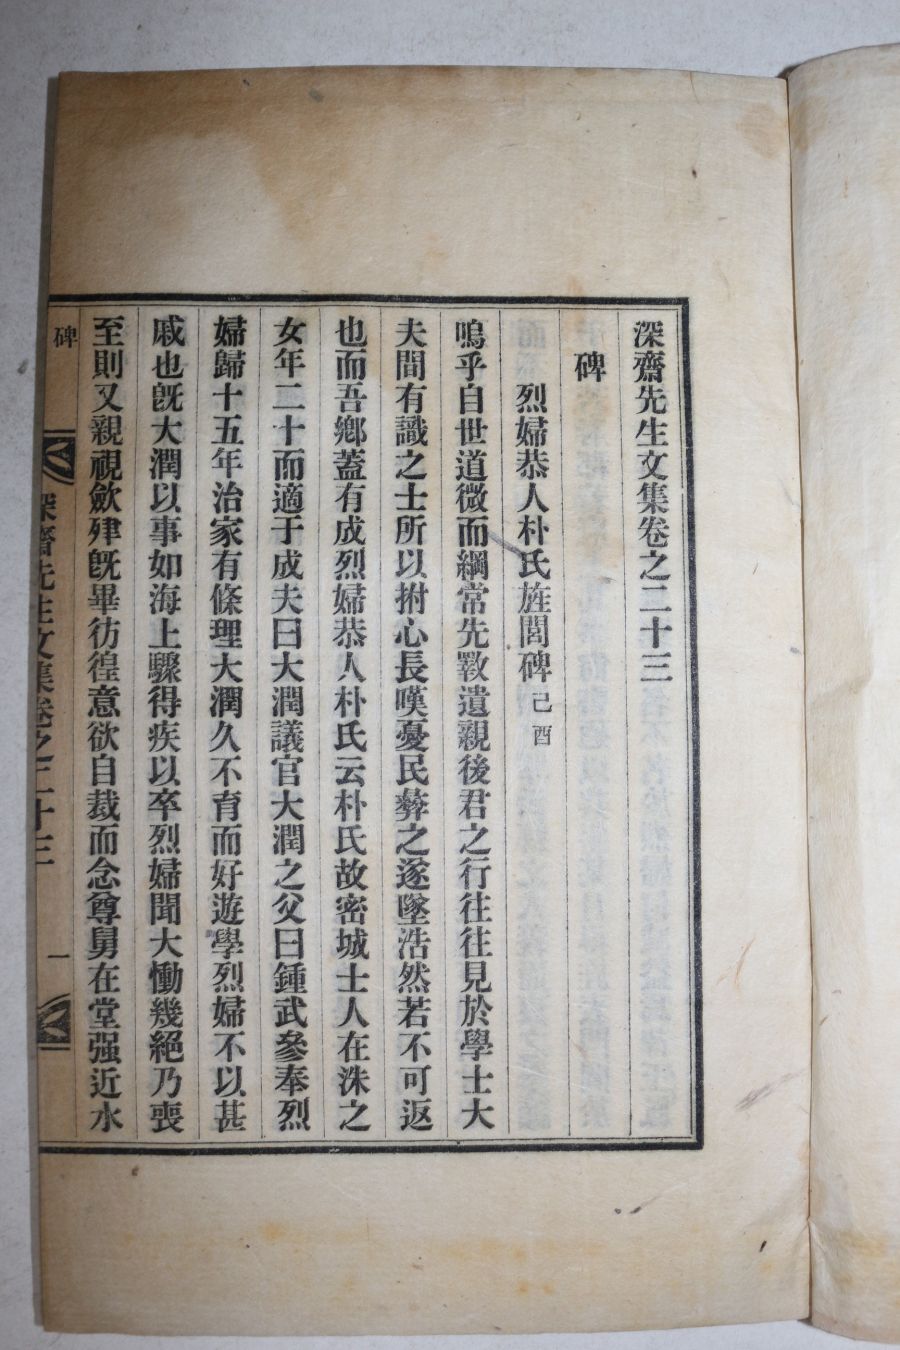 深齋先生文集卷之二十三
碑
烈婦恭人朴氏旌閭碑 己酉
嗚乎自世道微而綱常先斁遺親後君之行往往見於學士大
夫間有識之士所以拊心長嘆憂民彝之遂墜浩然若不可返
也而吾鄕蓋有成烈婦恭人朴氏云朴氏故密城士人在洙之
女年二十而適于成夫曰大潤議官大潤之父曰鍾武參奉烈
婦歸十五年治家有條理大潤久不育而好遊學烈婦不以甚
戚也旣大潤以事如海上驟得疾以卒烈婦聞大慟幾絕乃喪
至則又親視斂肂旣畢彷徨意欲自裁而念尊舅在堂强近水
碑
深齋先生文集卷之二十三
一